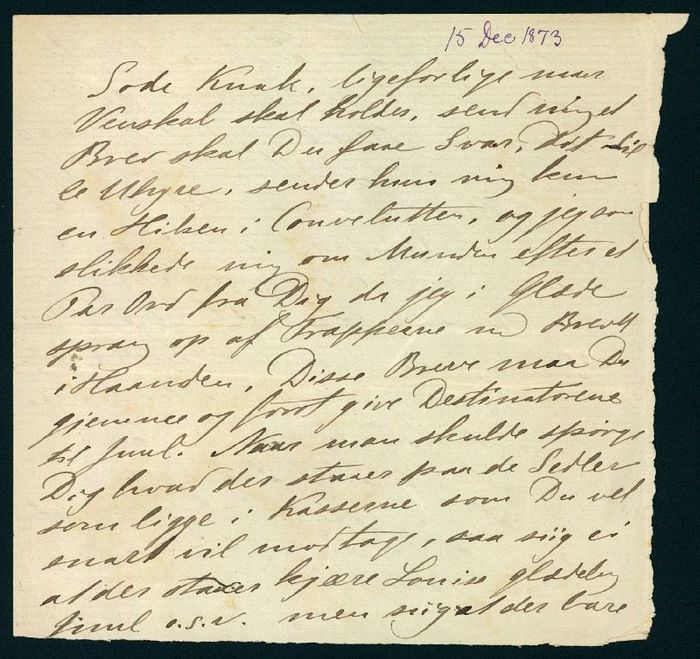 15 Dec 1873
Søde Knak, ligeforlige maa
Venskab skal holdes, send mig et
Brev skal Du faae Svar, Det
lle Uhyre, sender hun mig kun
en Hilsen i Convolutten, og jeg som
slikkede mig om Munden efter et
Par Ord fra Dig da jeg i Glæde
sprang op af Trapperne m Brevet
i Haanden. Disse Breve maa Du
gjemme og først give Destinatorene
til Juul. Naar man skulde spørge
Dig hvad der staaer paa de Sedler
som ligge i Kasserne som Du vel
snart vil modtage, saa siig ei
at der staaer kjære Louise glædelig
Juul o.s.v. men siig at der bare